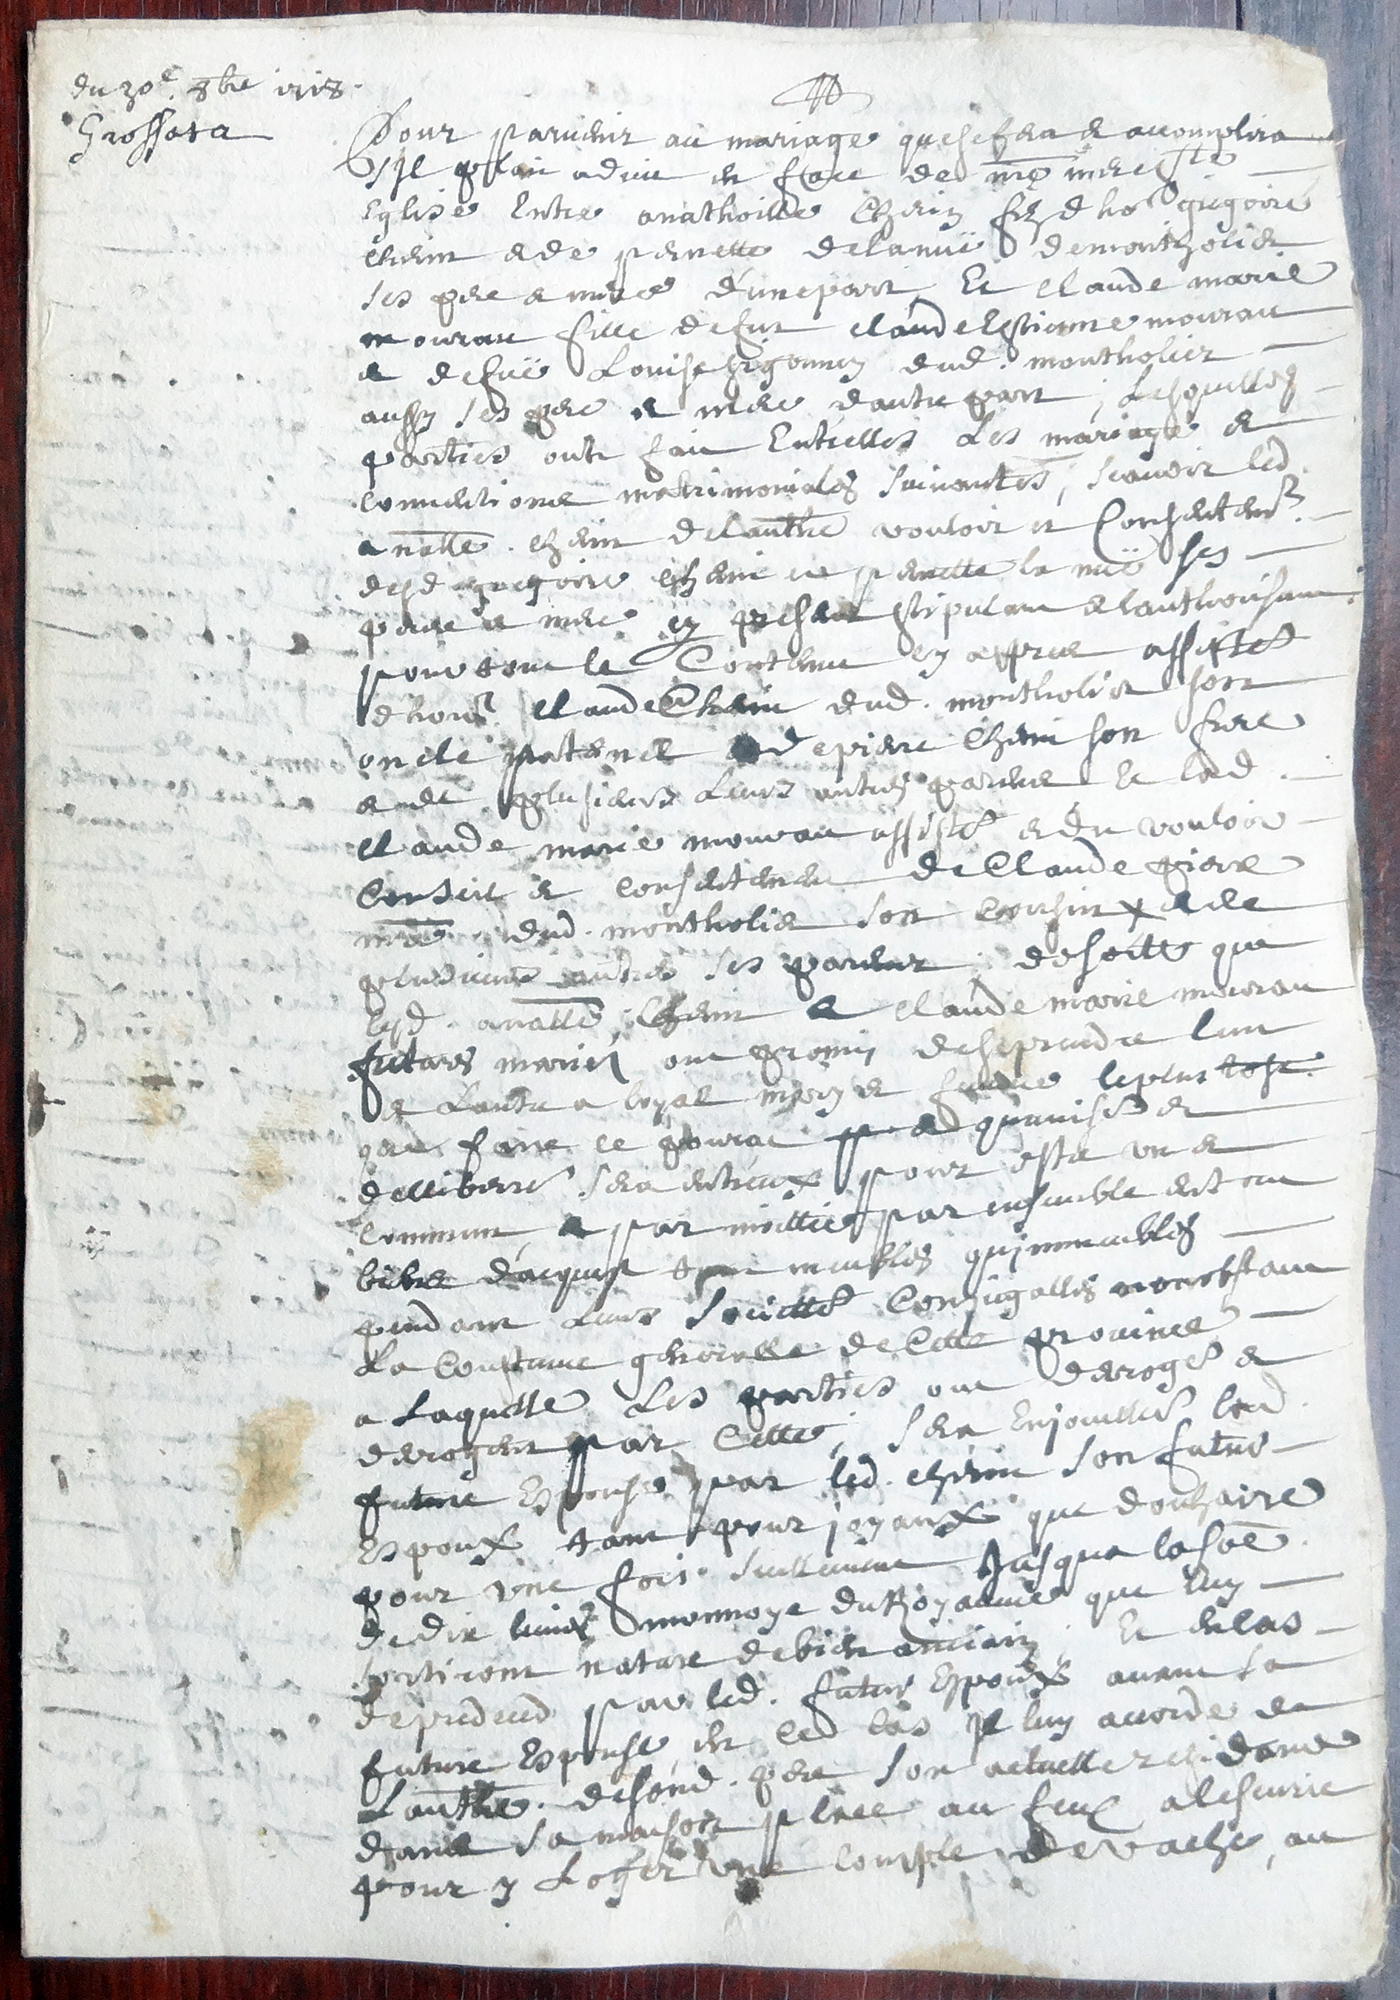 du 30e. 8bre 1718.
Grossata
Pour parvenir au mariage que se fera & accomplira
s'il plait a dieu en face de nre mere Ste
Eglise Entre anathoille Chenin fils d'hoe gregoire
Chenin & de pernette delanuë de montholier
ses pere & mere d'une part Et Claude marie
mourau fille de fut Claude Estienne mourau
& de fuë Louise dud. montholier
aussy ses pere & mere d'autre part, Lesquelles
parties ont fait Entrelles Les mariage &
conditions matrimoniales suivantes, scavoir led.
anatle. Chenin de lauthe vouloir et Consentemt.
desd gregoire Chenin et pernette la nuë ses
pere & mere cy present stipulant & lauthorisant
pour tout le Contenu cy apres assisté
d'honr. Claude Chenin dud. montholier son
oncle paternel de piere Chenin son frere
& de plusieurs Leurs autres parens Et lad.
Claude marie mourau assisté & du vouloir
Conseil & consentement de Claude piere
dud. montholier son cousin & de
plusieurs autres ses parens, de sorte que
lesd. anatle Chenin & Claude marie mourau
futurs mariés ont promis de se prendre lun
& Lautre a loyal mary & femme le plus tost
que faire ce pourat quavisé &
delliberé sera entreux pour estre uns &
communs & par moittié par ensemble en tous
biens d'acquest tant meubles qu'immeubles
pendant Leurs Societté Conjugalles nonobstant
La Coustume generalle de Cette province
a Laquelle Les parties ont derogé &
derogent par Cette, sera Enjouellée lad.
future Espouse par led. chenin son futur
Espoux tant pour joyaux que douhaire
pour une fois seullement Jusqua la soe
de dix livres monnoye du Royaume que luy
sortiront nature de bien anciain Et en cas
de predeced par led. futur Espoux avant sa
future Espouse, en ced cas Il luy accorde de
Lauthe. de sond. pere son actuelle residance
dans sa maison place au feux a lescurie
pour y Loger une couple de vache, au